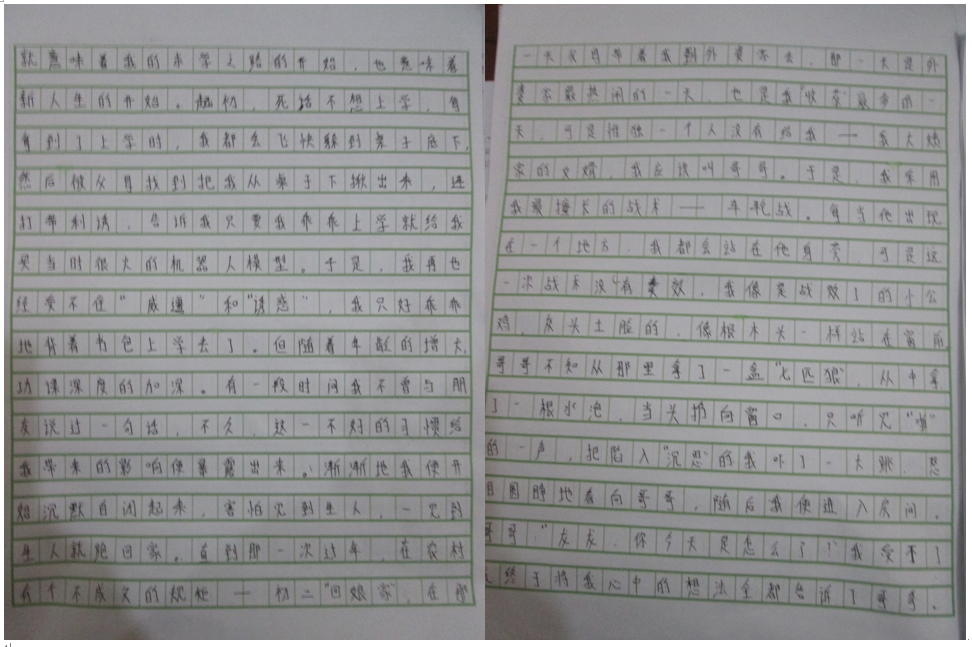 就意味着我的求学之路的开始，也意味着
新人生的开始。起初，死活不想上学，每
每到了上学的时，我都会飞快躲到桌子底下，
然后被父母找到把我从桌子下揪出来，连
打带利诱，告诉我只要我乖乖上学就给我
买当时很火的机器人模型。于是，我再也
经受不住“威逼”和“诱惑”，我只好乖乖
地背着书包上学去了。但随着年龄的增大，
功课深度的加深。有一段时间我不曾与朋
友说过一句话，不久，这一不好的习惯给
我带来的影响便暴露出来。渐渐地我便开
始沉默自闭起来，害怕见到生人，一见到
生人就跑回家。直到那一次过年，在农村
有个不成文的规矩——初二“回娘家”，在那
一天父母带着我到外婆家去，那一天是外
婆家最热闹的一天，也是我“收获”最多的一
天，可是惟独一个人没有给我——我大姨
家的女婿，我应该叫哥哥。于是，我采用
我最擅长的战术——车轮战。每当他出现
在一个地方，我都会站在他身旁，可是这
一次战术没有奏效，我像是战败了的小公
鸡，灰头土脸的，像根木头一样站在窗前
哥哥不知从那里拿了一盒“七匹狼”，从中拿
了一根水炮，当头扔向窗口，只听见“嘣”
的一声，把陷入“沉思”的我吓了一大跳，怒
目圆瞪地看向哥哥，随后我便进入房间。
哥哥：“友友，你今天是怎么了？”我受不了
终于将我心中的想法全都告诉了哥哥。